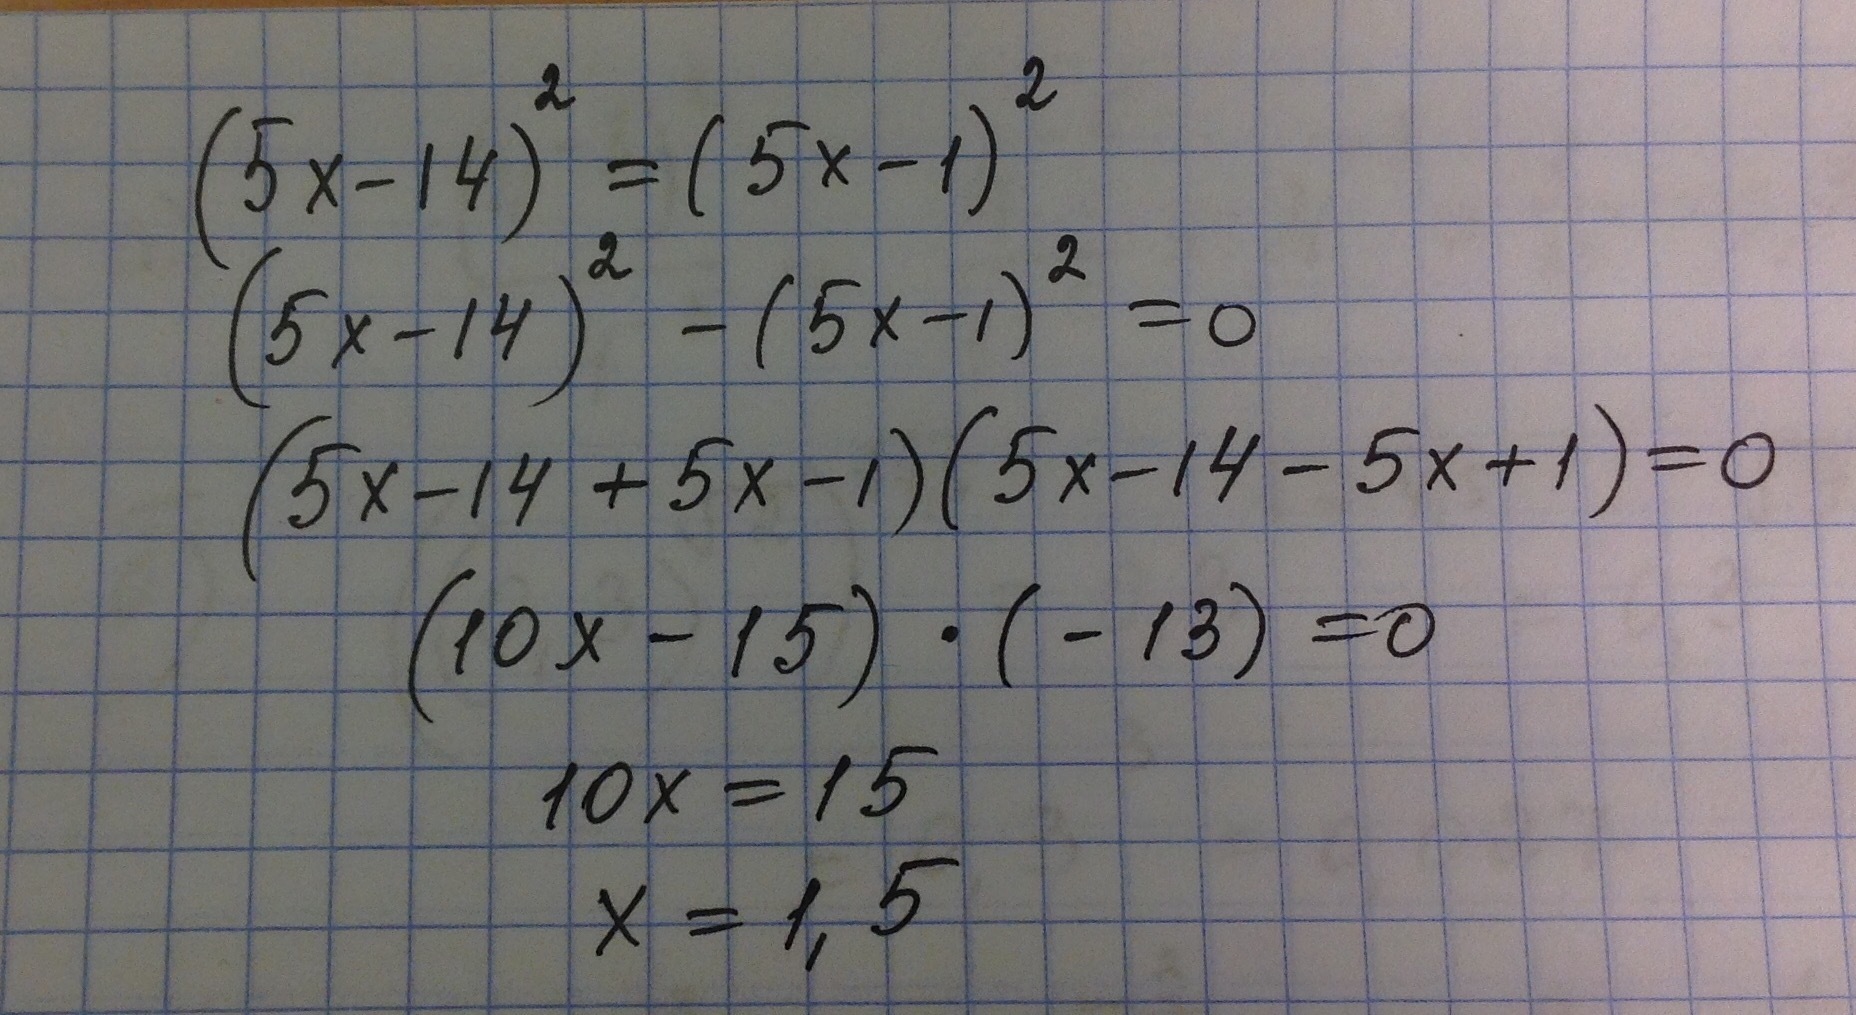 (5x-14)² = (5x-1)²
(5x-14)² - (5x-1)² = 0
(5x-14+5x-1)(5x-14-5x+1)=0
(10x-15)·(-13)=0
10x=15
x=1,5